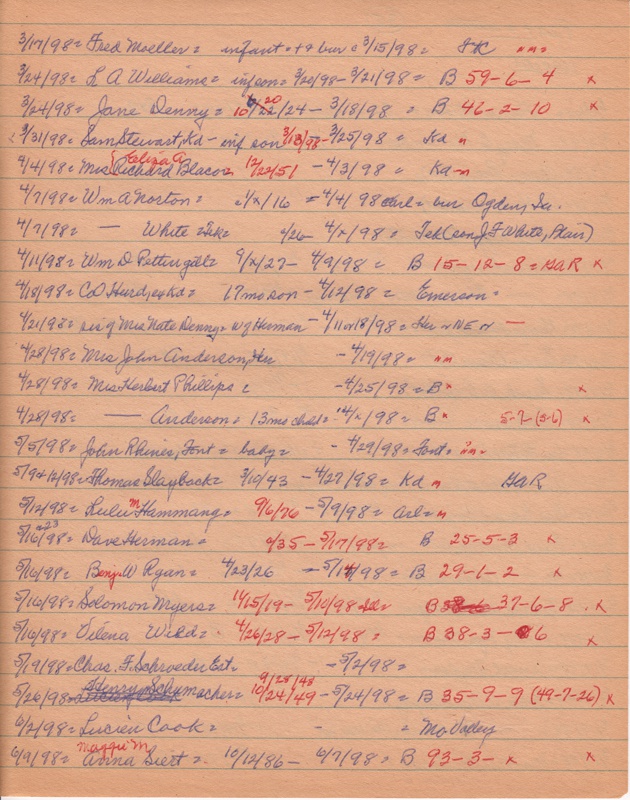 3/17/98 = Fred Moeller = infant + & bur c 3/15/98 = "n=
3/24/98 = L A Williams = inf son = 3/20/98 - 3/21/98 = B 59-6-4 x
3/24/98 = Jane Denny = 10/22/24 - 3/18/98 = B 46-2-10 x
20
3/31/98 = Sam Stewart, Kd - inf son 3/13/98 - 3/25/98 = Kd n
4/4/98 = Mrs Richard Blacor 12/22/51 - 4/3/98 = Kd n
Eliza A
4/7/98 = Wm A Norton = 1/x/16 = 4/4/98 = bur Ogden, Ia.
4/7/98 = — White = 4/26 - 4/x/98 = Ted (son J F White, Plair)
4/11/98 = Wm D Pettengill = 9/x/27 - 4/9/98 = B 15-12-8 = GAR x
4/18/98 = CO Hurd, Kd = 17 mo son - 4/12/98 = Emerson =
4/21/98 = sis of Mrs Nate Denny = w of Herman - 4/11 or 18/98 = NE n —
4/28/98 = Mrs John Anderson, - 4/19/98 = "n
4/28/98 = Mrs Herbert Phillips - 4/25/98 = B x x
4/28/98 = — Anderson = 13 ms child = 4/x/98 = B x 5-7-(5-6) x
5/5/98 = John Rhines, Font = baby = - 4/29/98 = Font = "n=
5/9+12/98 = Thomas Slayback = 3/10/43 - 4/27/98 = Kd n GAR
5/12/98 = Lulu M Hammang = 9/6/76 - 5/9/98 = Arl = n
5/16/98 = Dave Herman = 9/35 - 5/17/98 = B 25-5-3 x
+23
5/16/98 = Benj W Ryan = 4/23/26 - 5/14/98 = B 29-1-2 x
5/16/98 = Solomon Myers = 11/15/19 - 5/10/98 B 37-6-8 x
5/16/98 = Vilena Wild = 4/26/28 - 5/12/98 = B 38-3-6 x
5/19/98 = Chas. F. Schroeder Est = - 5/2/98 =
5/26/98 = Henry Schumacher = 10/24/49 - 5/24/98 = B 35-9-9 (49-7-26) x
9/28/48
6/2/98 = Lucien Cook = - = Mo Valley
6/9/98 = Anna Siert = 10/12/86 - 6/7/98 = B 93-3- x x
Maggie M